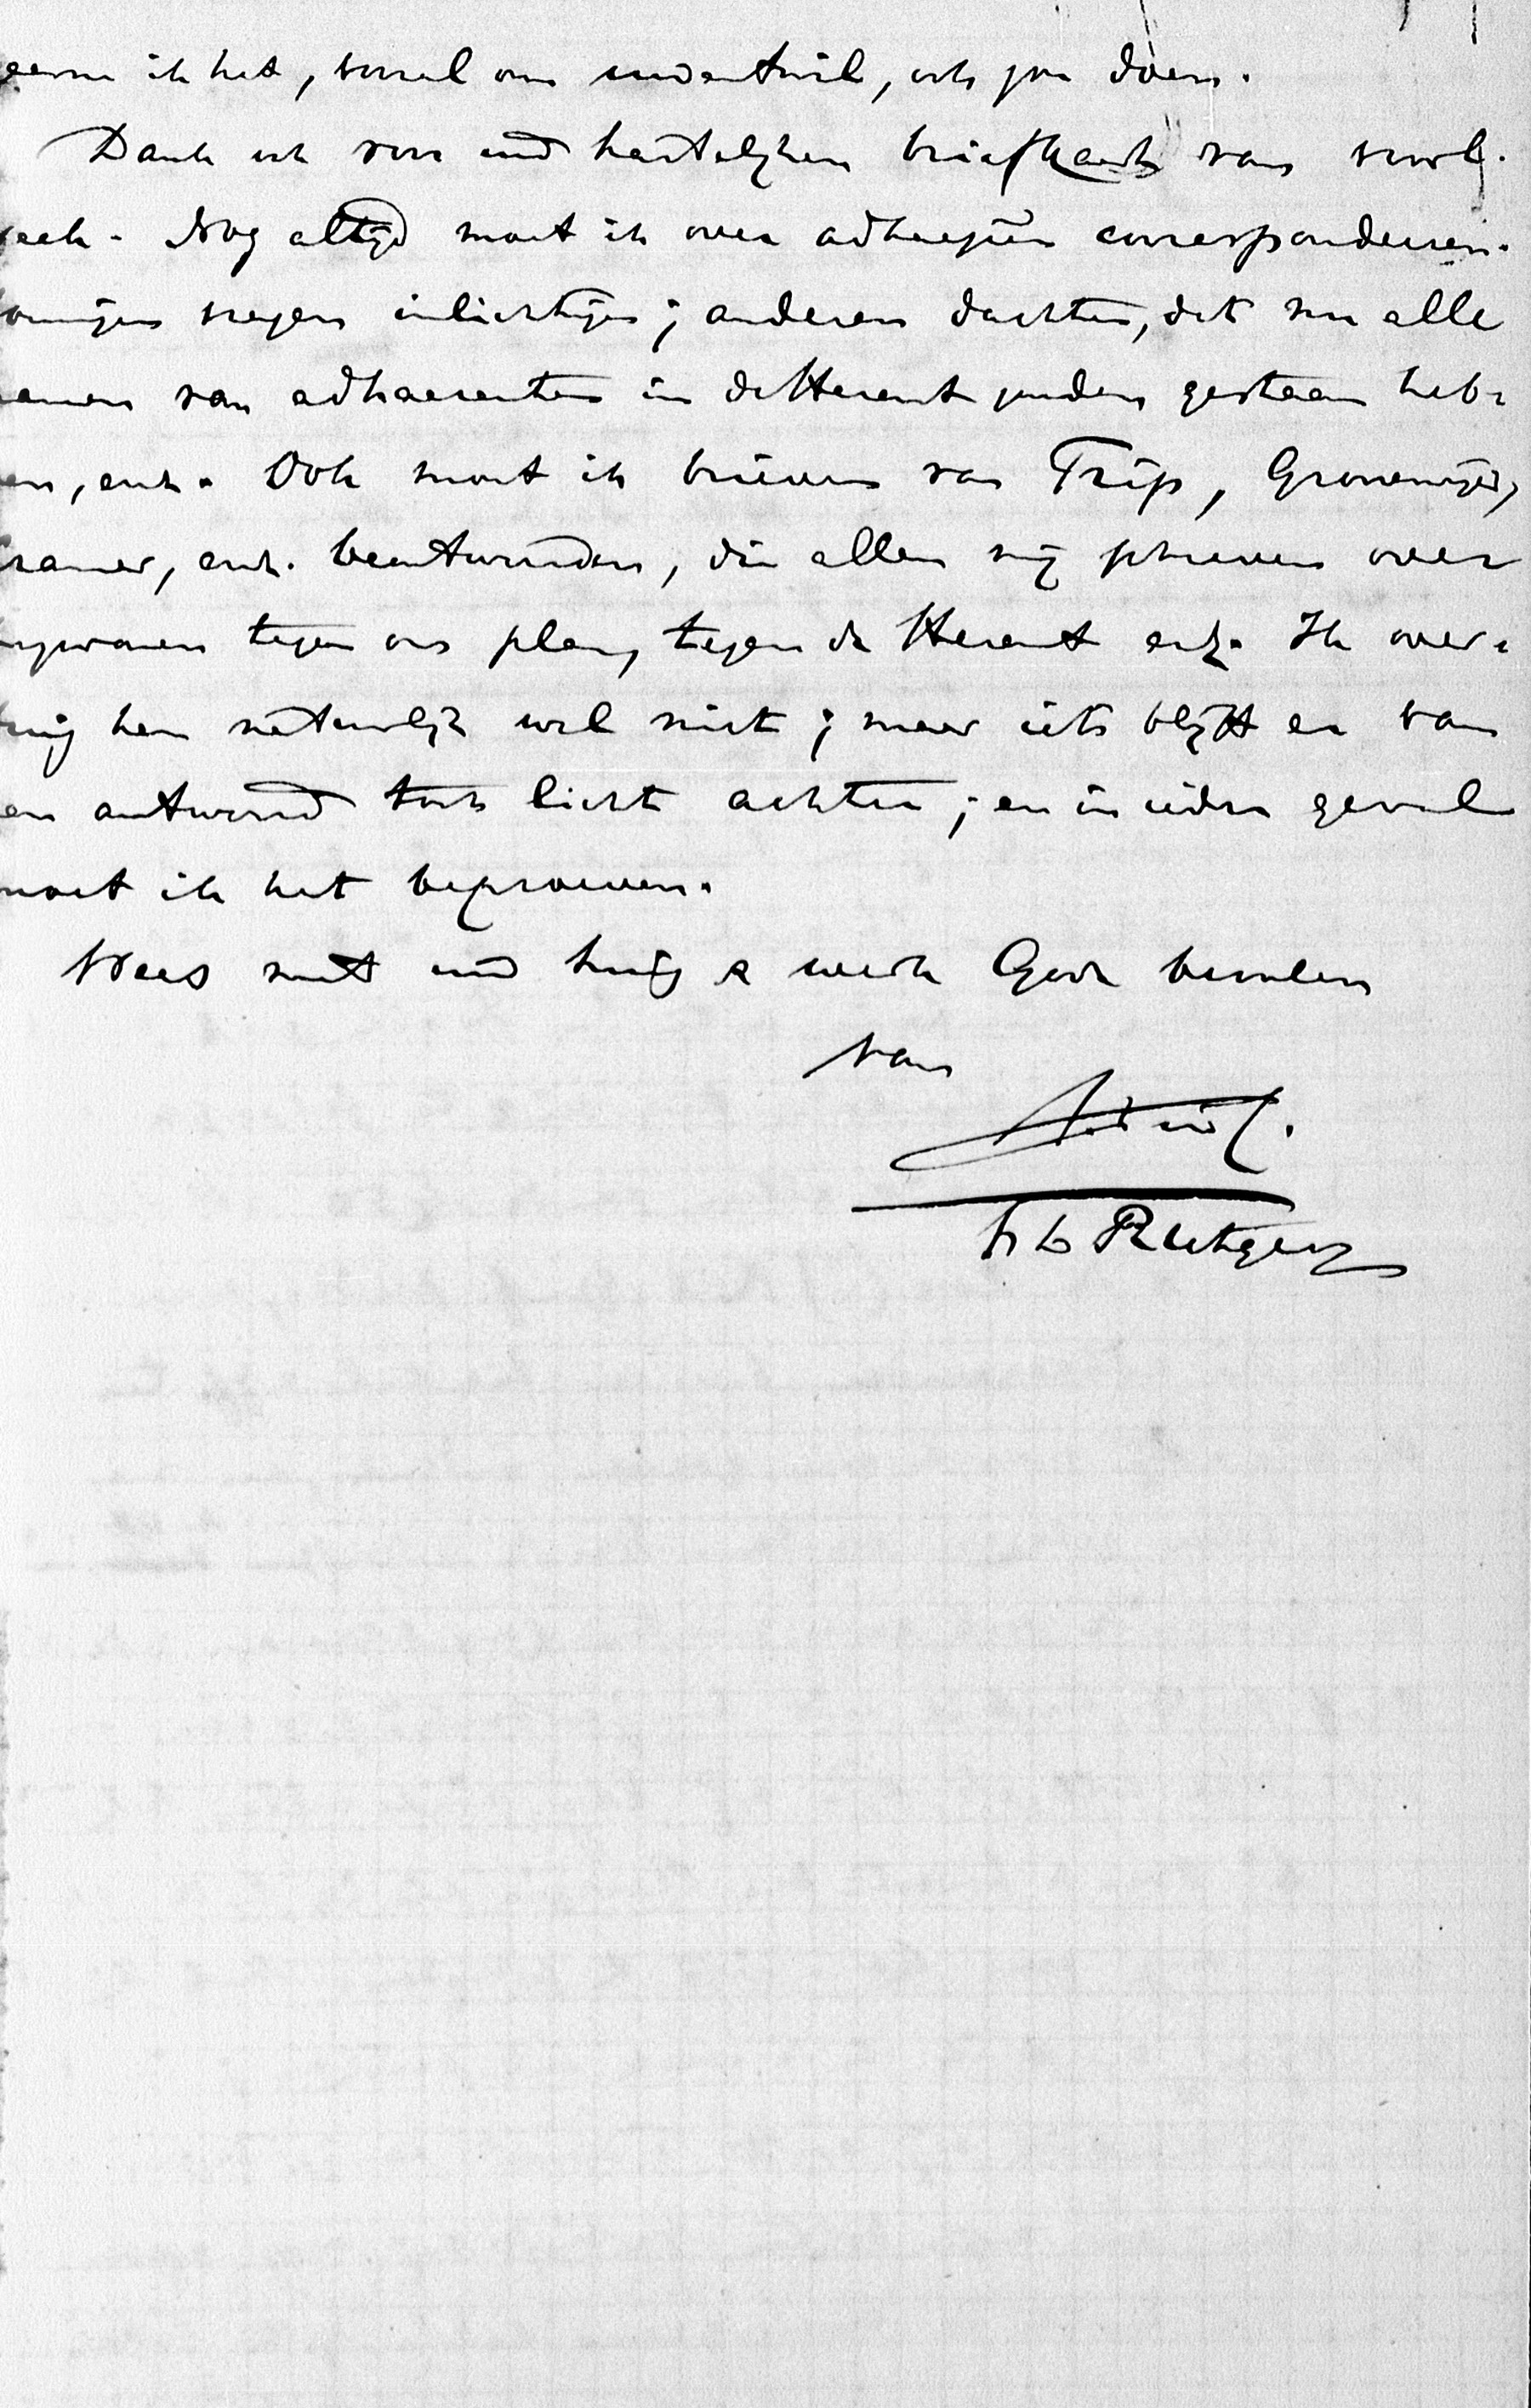 gaarne ik het, vooral om uwentwil, ook zou doen.
Dank ook voor uwe hartelijken briefkaart van verl.
week. Nog altijd moet ik over adhaesiën correspondeeren.
vragen inlichtingen; anderen dachten, dat nu alle
namen van adhaerenten in de Heraut zouden gestaan heb-
en, enz. Ook moet ik brieven van Trip, Groeneweg,
Kramer, enz. beantwoorden, die allen mij schreven over
tegen ons plan, tegen de Heraut enz. Ik over-
tuig hen natuurlijk wel niet; maar iets blijft er van
een antwoord toch licht achter; en in ieder geval
moet ik het beproeven.
Wees met uw huis Gode bevolen
van
t.t.
F L Rutgers